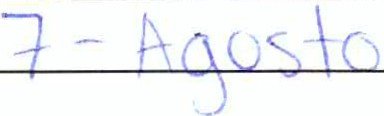 7 - Agosto